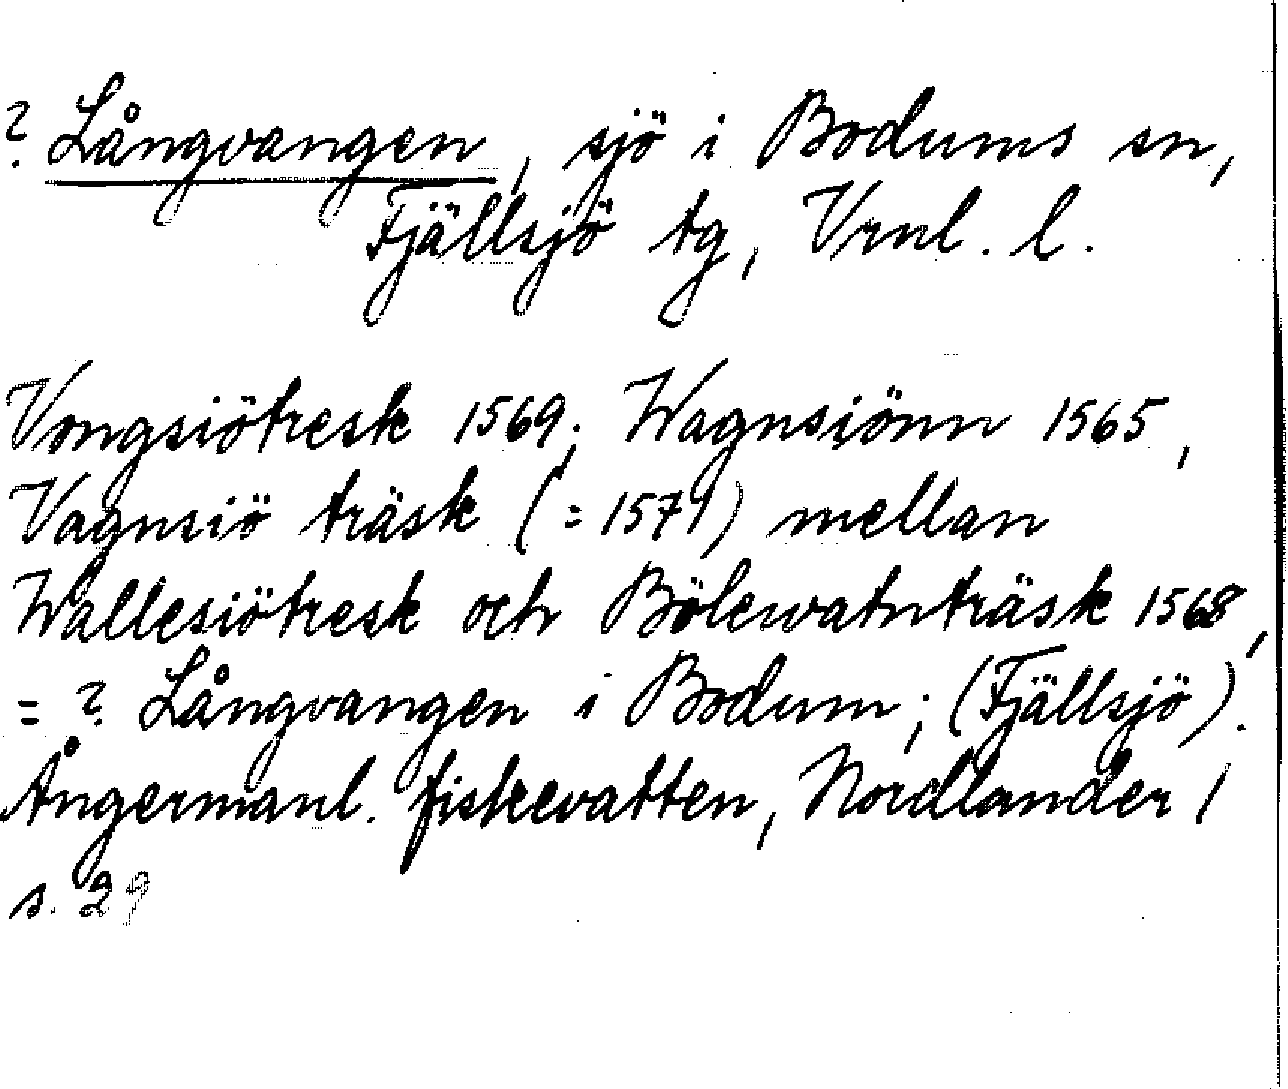 ? Långvangen, sjö i Bodums sn,
Fjällsjö tg, Vrnl. l.
Vongsiötresk 1569; Wagnsiönn 1565,
Vagnsiö träsk (= 1571) mellan
Wallesiötresk och Bölewatnträsk 1568,
= ? Långvangen i Bodum; (Fjällsjö).
Ångermanl. fiskevatten, Nordlander 1
s. 29